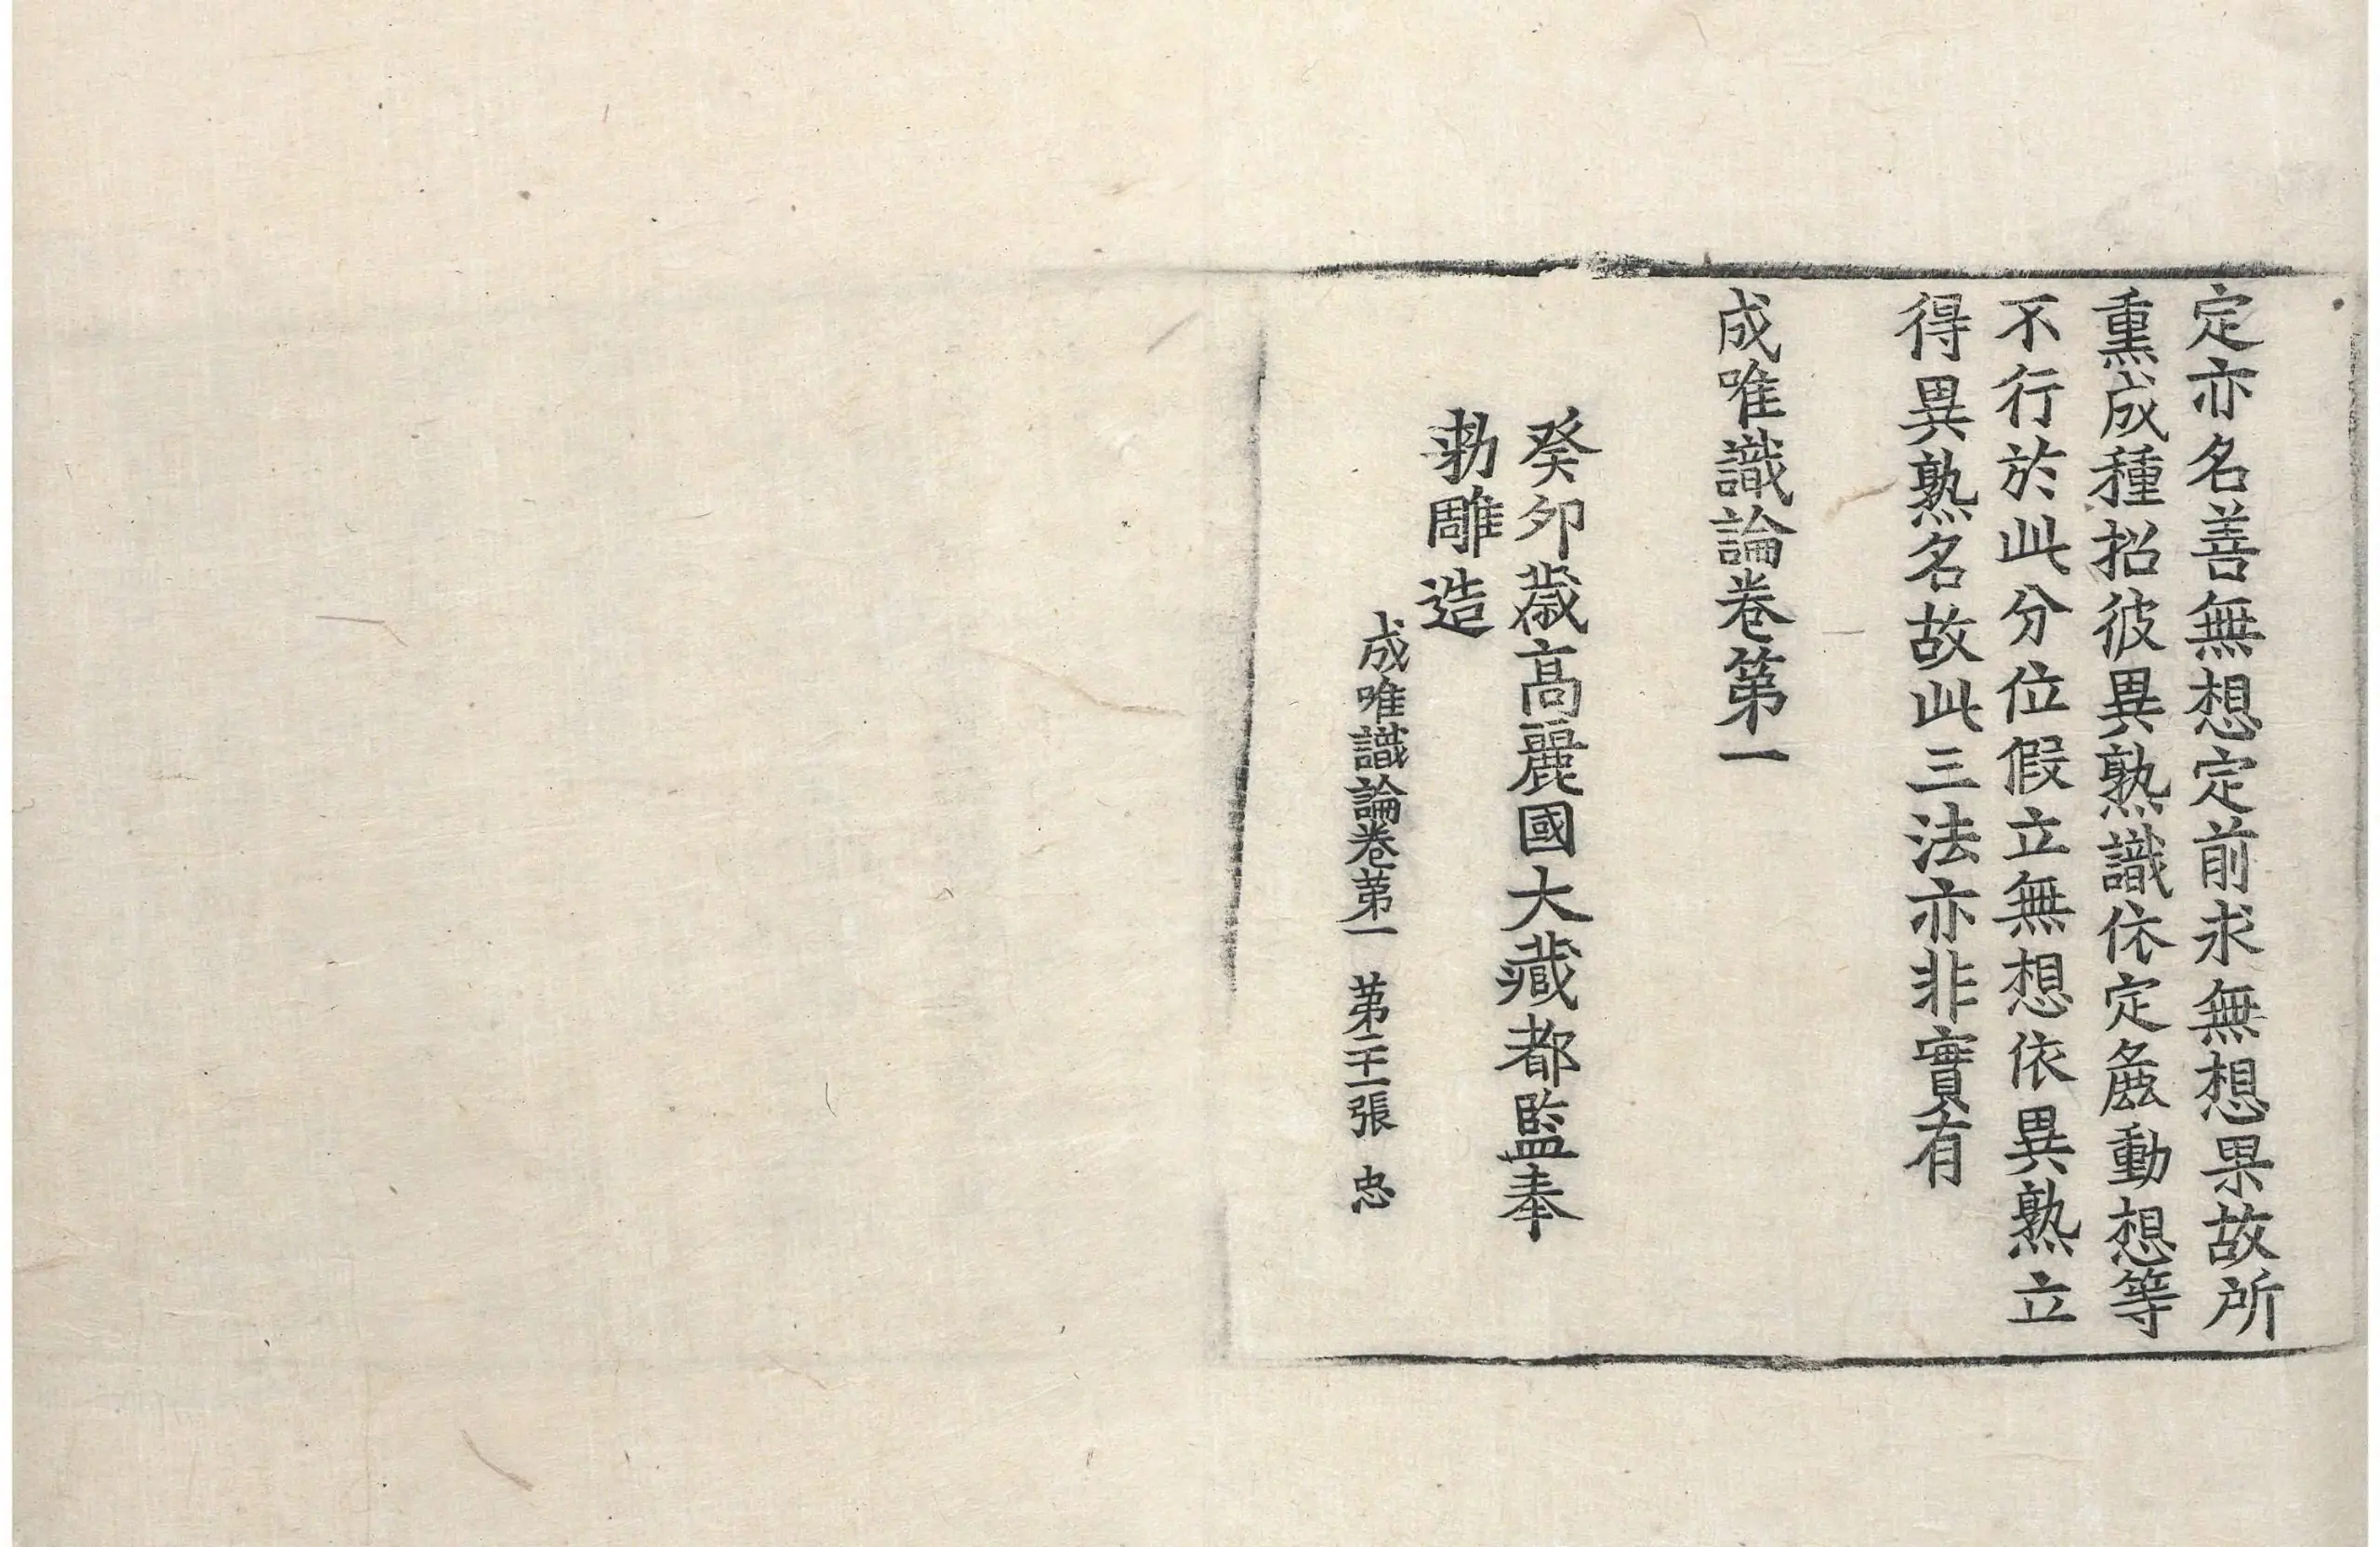 定亦名善無想定前求無想果故所
熏成種招彼異熟識依定麁動想等
不行於此分位假立無想依異熟立
得異熟名故此三法亦非實有
成唯識論卷第一
癸卯歲高麗國大藏都監奉
勅雕造
成唯識論卷第一 第二十一張 忠